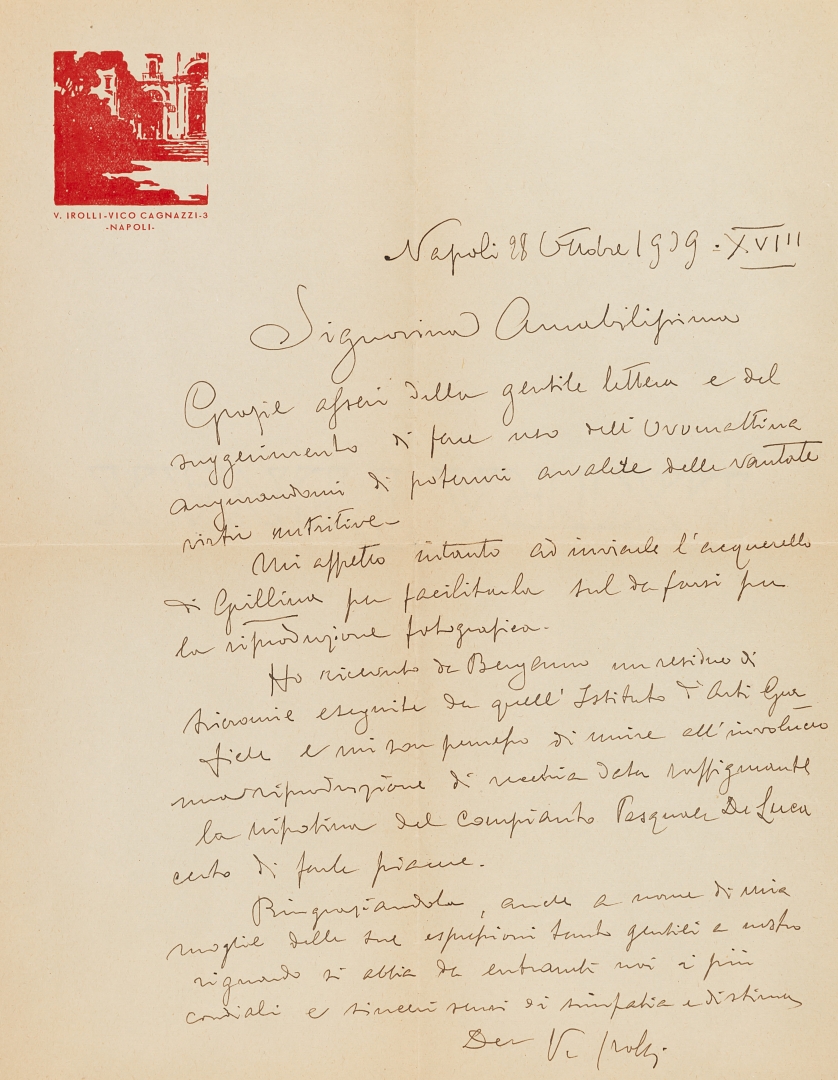 V. IROLLI-VICO CAGNAZZI-3
-NAPOLI-
Napoli 28 Ottobre 1939 = XVIII
Signorina Amabilissima
Grazie assai della gentile lettera e del
suggerimento di fare uso dell'Ovomattina
augurandomi di potermi avvalere delle vantate
virtù nutritive -
Mi affretto intanto ad inviarle l'acquerello
di Grillina per facilitarla sul da farsi per
la riproduzione fotografica -
Ho ricevuto da Bergamo un residuo di
tricromie eseguite da quell'Istituto d'Arti Gra
fiche e mi son permesso di unire all'involucro
una riproduzione di vecchia data raffigurante
la nipotina del compianto Pasquale De Luca
certo di farle piacere -
Ringraziandola, anche a nome di mia
moglie delle sue espressioni tanto gentili a nostro
riguardo si abbia da entrambi noi i più
cordiali e sinceri sensi di simpatia e distima
V. Irolli